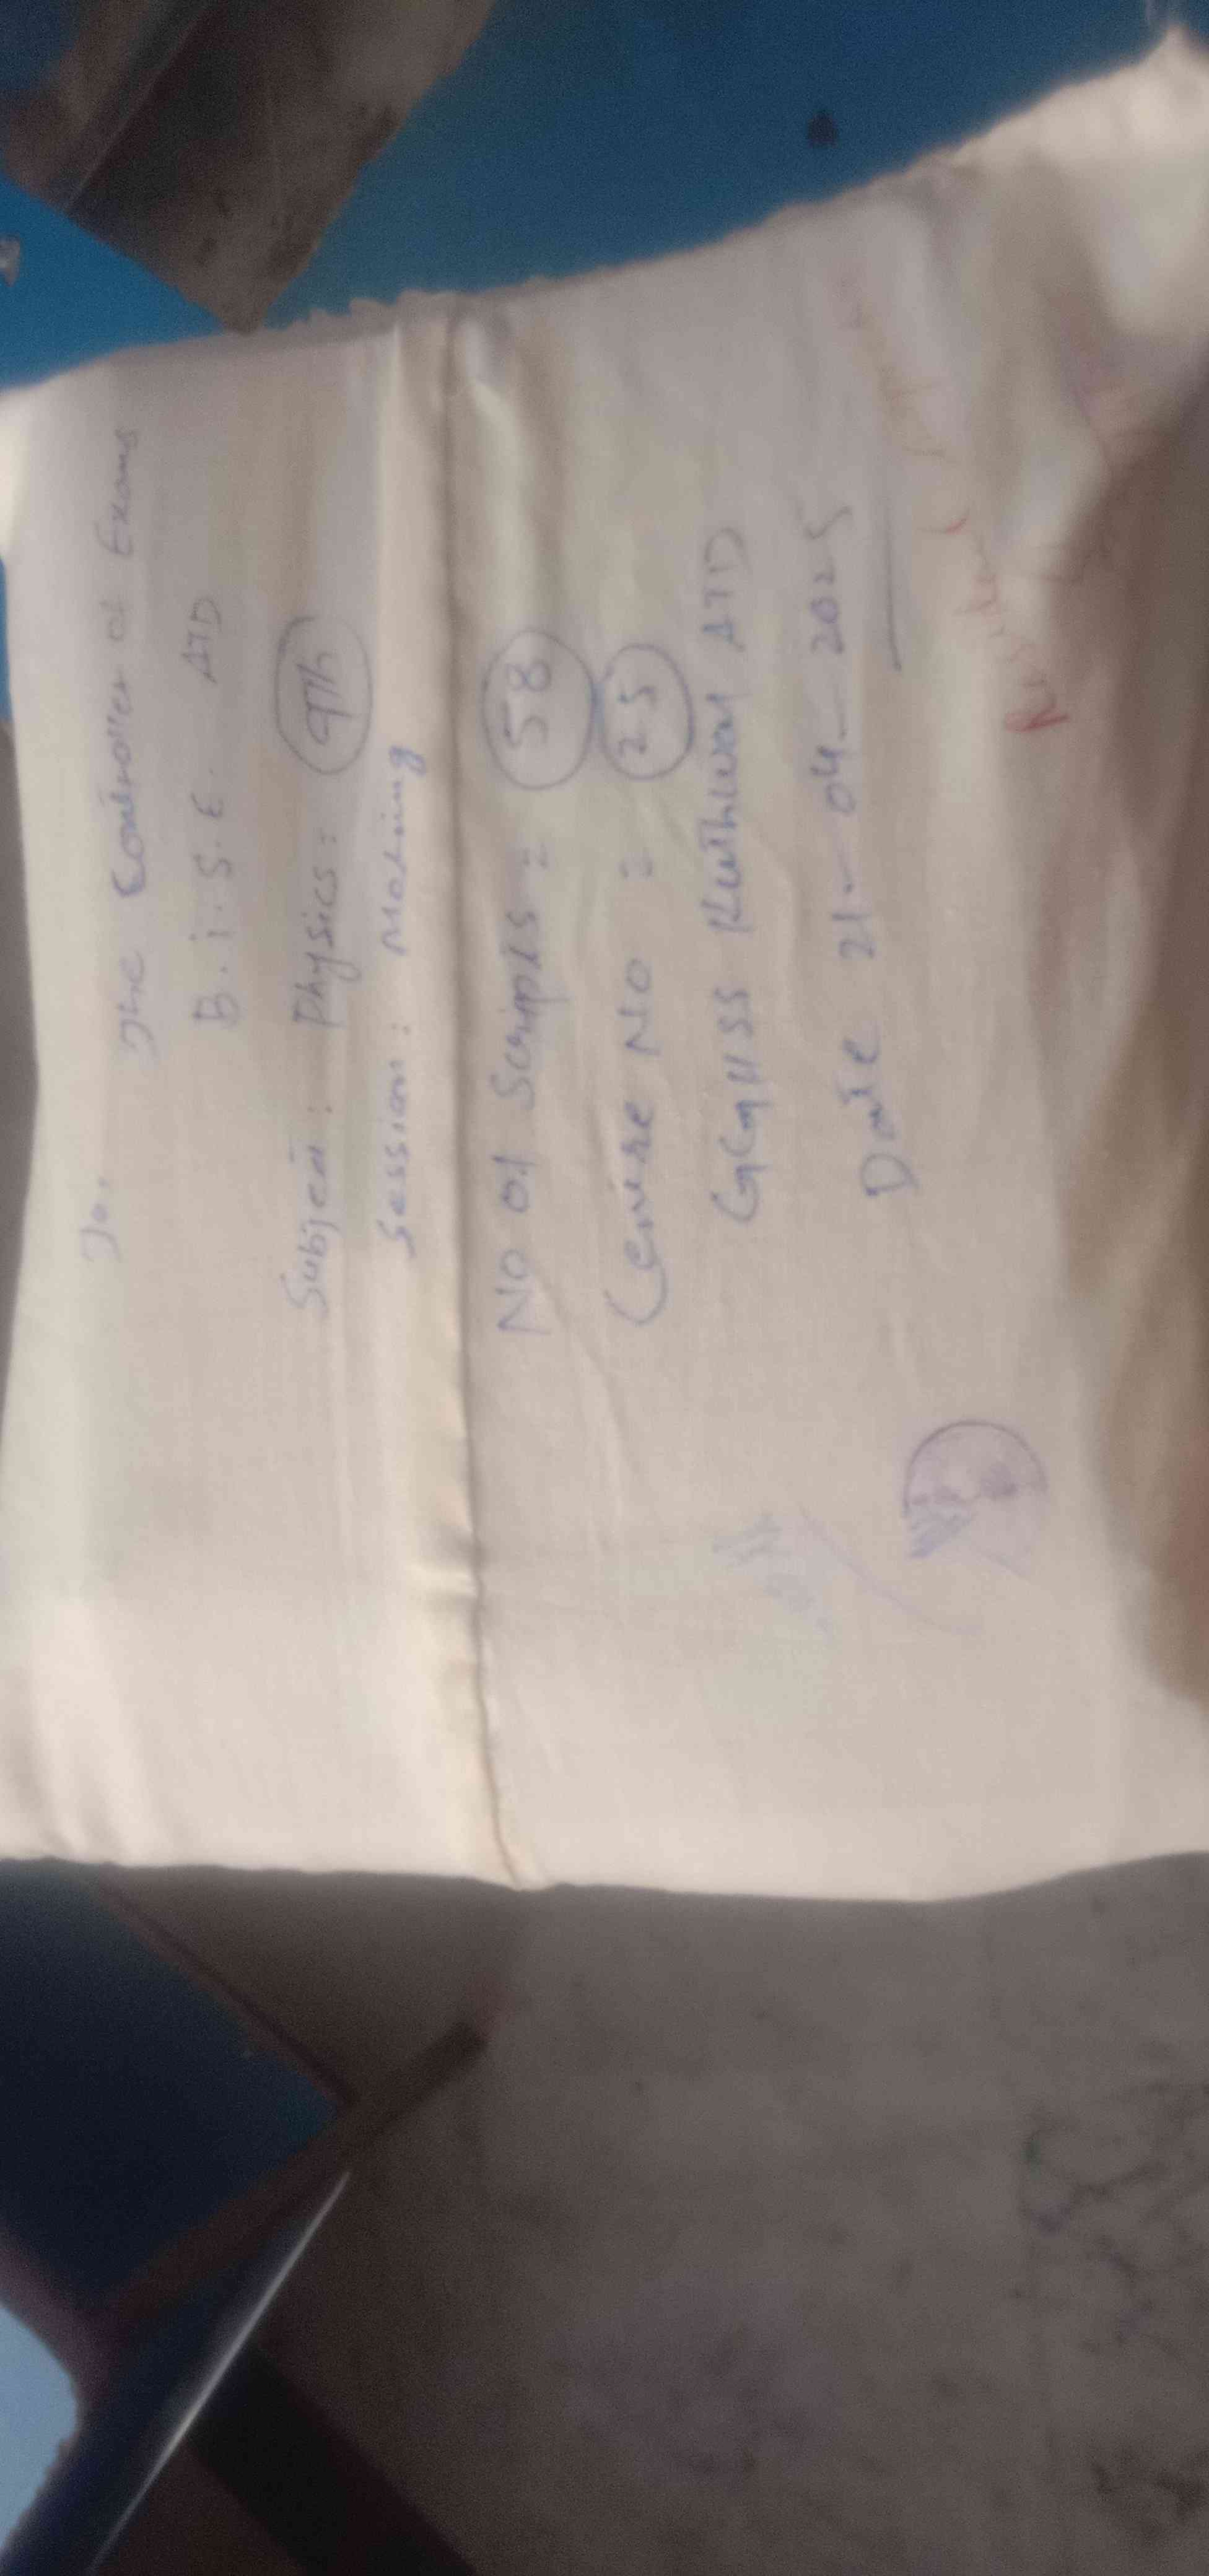 To,
The Controller of Exams
B.i.S.E. ATD
Subject : Physics : 9Th
Session : Morning
No of Scripts = 58
Centre No = 25
GGHSS Kuthwal ATD
Date 21-04-2025